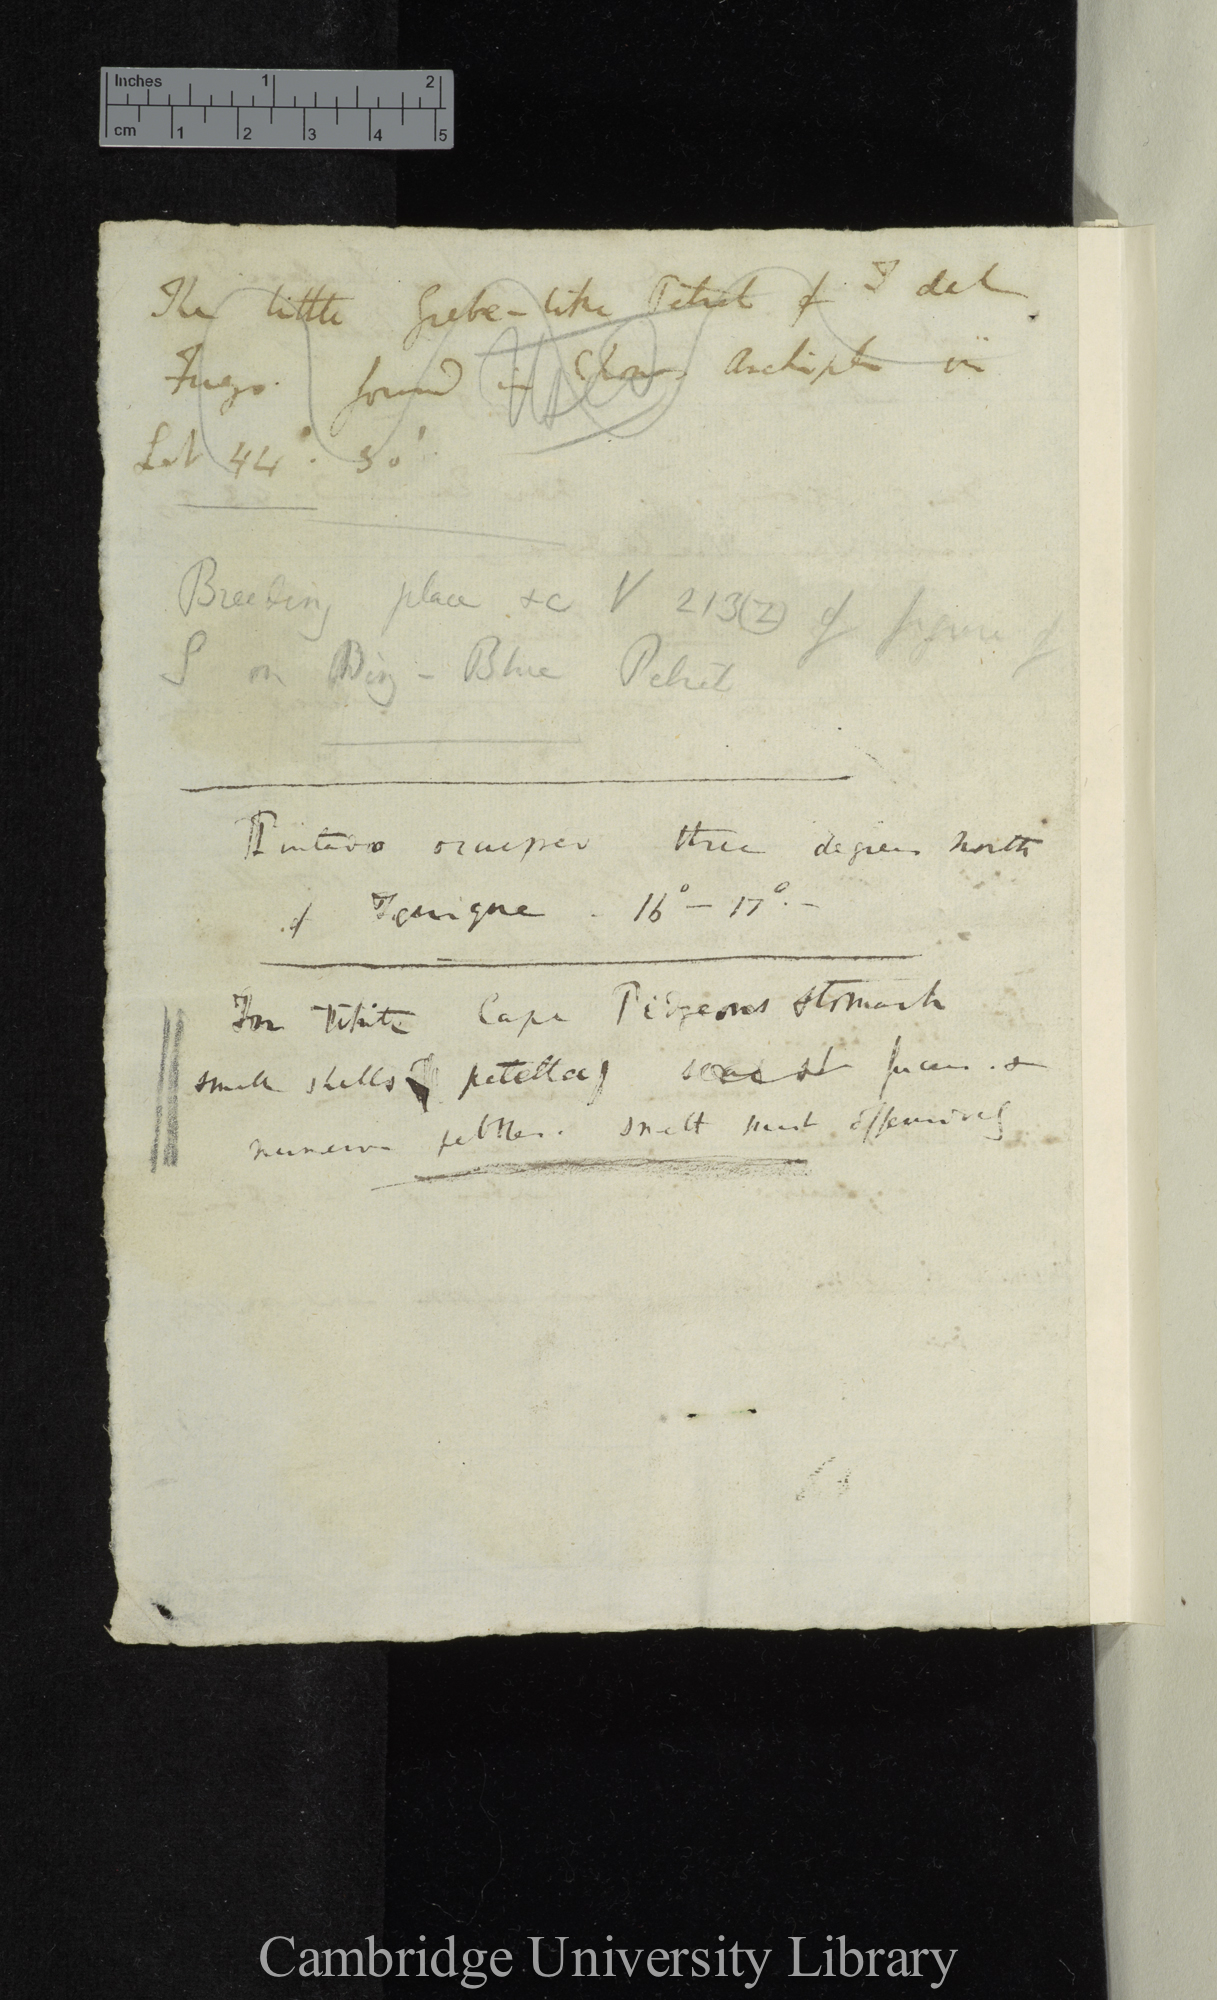 Inches 1 2
cm 1 2 3 4 5
The little Grebe-like Petrel of T del
Fuego. found in Chonos Archipelo in
Used
Lat 44°. 30'
Breeding place &c V 213(Z) of figure of
S on Big - Blue Petrel
Pintado three degrees north
of Iquique - 16° - 17°. -
In White Cape Pidgeons stomach
small shells patella fucus. &
numerous pebbles. smelt most offensively
Cambridge University Library